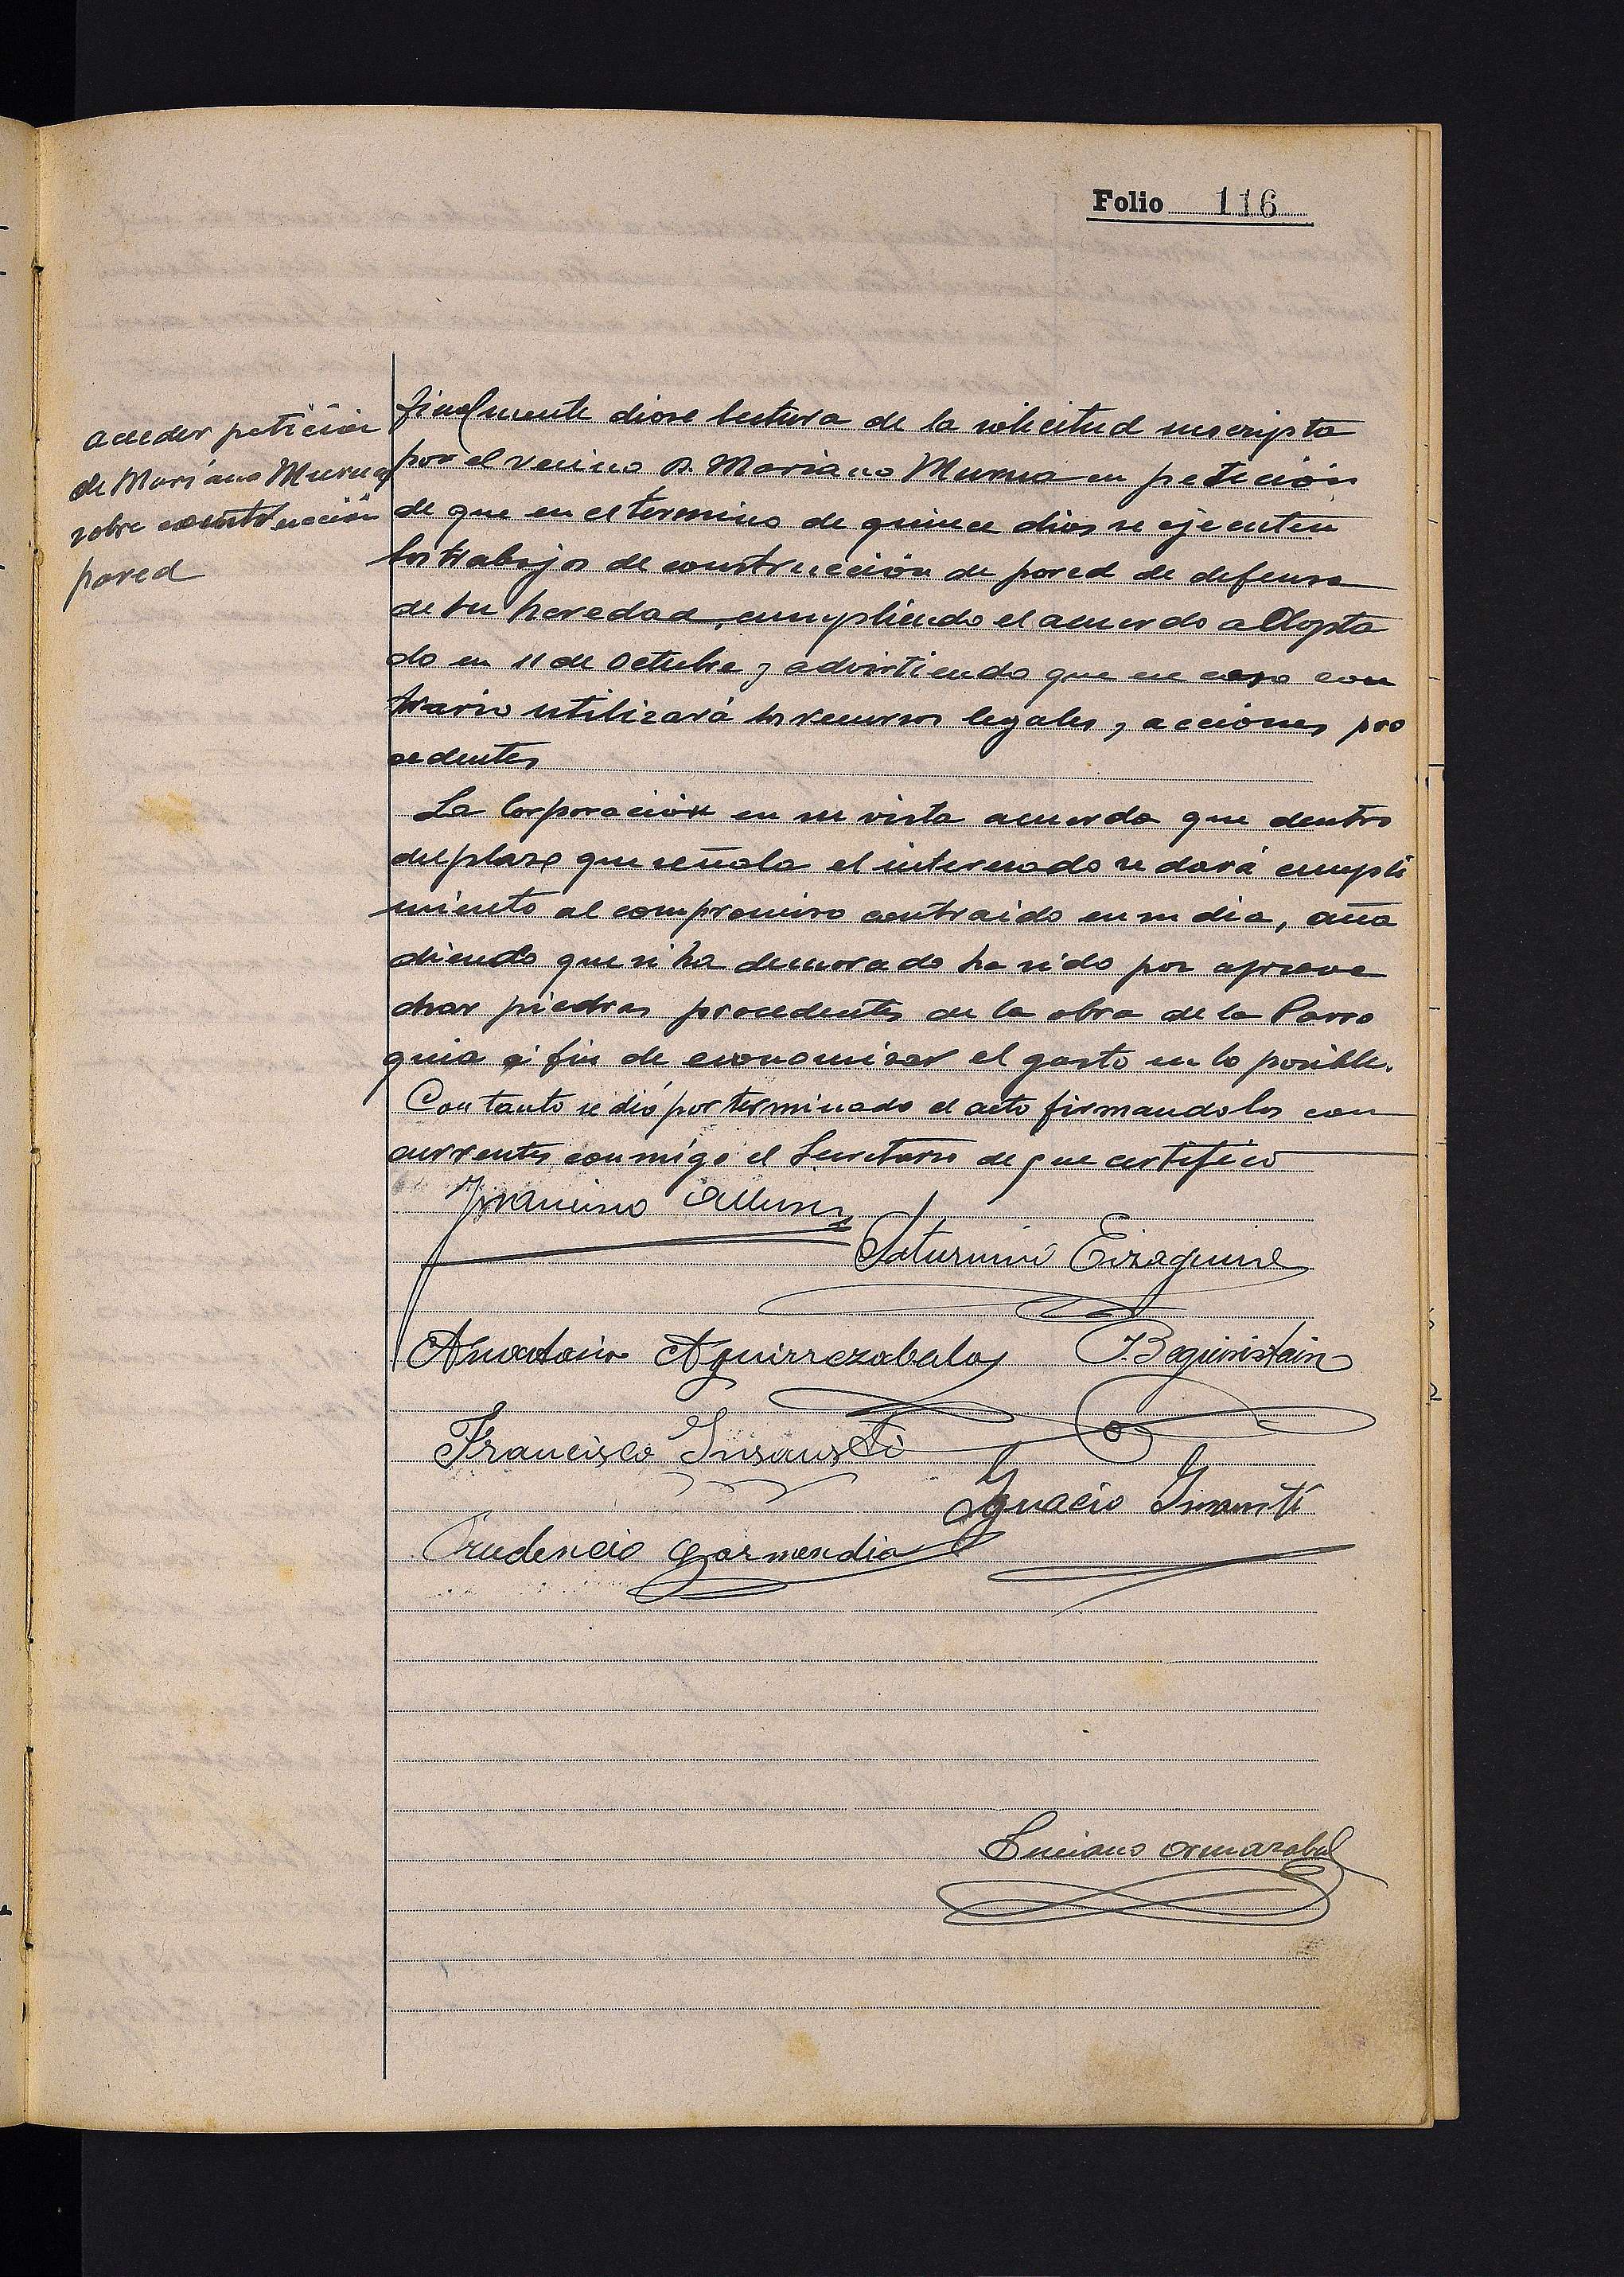 Folio 116
acceder petición
de Mariano Murua
sobre construcción
pared
finalmente diose lectura de la solicitud suscripta
por el vecino D. Mariano Murua en petición
de que en el termino de quince dias se ejecuten
los trabajos de construcción de pared de defensa
de su heredad, cumpliendo el acuerdo adopta
do en 11 de Octubre y advirtiendo que en caso con
trario utilizará los recursos legales y acciones pro
cedentes
La Corporación en su vista acuerda que dentro
del plazo que señala el interesado se dará cumpli
miento al compromiso contraido en su dia, aña
diendo que si ha demorado ha sido por aprove
char piedras procedentes de la obra de la Parro
quia a fin de economizar el gasto en lo posible.
Con tanto se dió por terminado el acto firmando los con
currentes conmigo el Secretario de que certifico
Saturnino Eizaguirre
Anastasio Aguirrezabala J. Beguiristain
Francisco Insausti
Ignacio Insausti
Prudencio Garmendia
Luciano Ormazabal